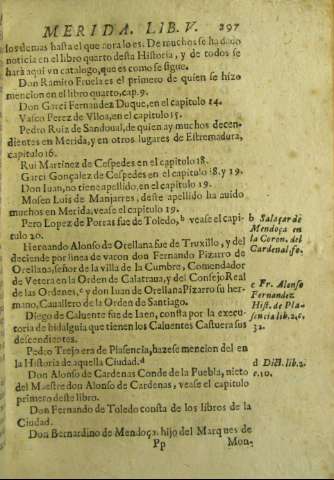 MERIDA. LIB. V. 297
los demas hasta el que aora lo es. De muchos se ha dado
noticia en el libro quarto desta Historia, y de todos se
harà aqui vn catalogo, que es como se sigue.
Don Ramiro Fruela es el primero de quien se hizo
mencion en el libro quarto, cap. 9.
Don Garci Fernandez Duque, en el capitulo 14.
Vasco Perez de Vlloa, en el capitulo 15.
Pedro Ruiz de Sandoual, de quien ay muchos decen-
dientes en Merida, y en otros lugares de Estremadura,
capitulo 16.
Rui Martinez de Cespedes en el capitulo 18.
Garci Gonçalez de Cespedes en el capitulo 18. y 19.
Don Iuan, no tiene apellido, en el capitulo 19.
Mosen Lois de Manjarres, deste apellido ha auido
muchos en Merida, vease el capitulo 19.
Pero Lopez de Porras fue de Toledo, b vease el capi-
tulo 20.
Hernando Alonso de Orellana fue de Truxillo, y del
deciende por linea de varon Don Fernando Pizarro de
Orellana, señor de la villa de la Cumbre, Comendador
de Vetera en la Orden de Calatraua, y del Consejo Real
de las Ordenes, c y don Iuan de Orellana Pizarro su her-
mano, Cauallero de la Orden de Santiago.
Diego de Caluente fue de Iaen, consta por la execu-
toria de hidalguia que tienen los Caluentes Castuera sus
descendientes.
Pedro Trejo era de Plasencia, hazese mencion del en
la Historia de aquella Ciudad. d
Don Alonso de Cardenas Conde de la Puebla, nieto
del Maestre don Alonso de Cardenas, vease el capitulo
primero deste libro.
Don Fernando de Toledo consta de los libros de la
Ciudad.
Don Bernardino de Mendoça, hijo del Marques de
Pp Mon-
b Salazar de
Mendoça en
la Coron. del
Cardenal.fo.
c Fr. Alonso
Fernandez
Hist. de Pla-
sencia lib. 2. c.
32.
d Dict. lib. 2.
c. 10.